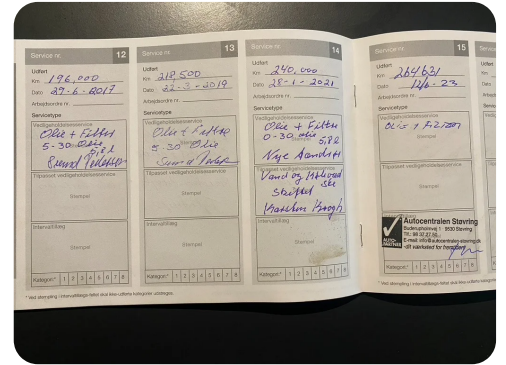 Service nr. 12
Udført
Km 196,000
Dato 27-6-2017
Arbejdsordre nr.
Servicetype
Vedligeholdelsesservice
Olie + Filter
5-30 Olie
5,8 l
Svend
Tilpasset vedligeholdelsesservice
Stempel
Intervaltillæg
Stempel
Kategori* 1 2 3 4 5 6 7 8
Service nr. 13
Udført
Km 218,500
Dato 22-3-2019
Arbejdsordre nr.
Servicetype
Vedligeholdelsesservice
Olie + Filter
5-30 Olie
Svend
Tilpasset vedligeholdelsesservice
Stempel
Intervaltillæg
Stempel
Kategori* 1 2 3 4 5 6 7 8
Service nr. 14
Udført
Km 240,000
Dato 28-1-2021
Arbejdsordre nr.
Servicetype
Vedligeholdelsesservice
Olie + Filter
0-30 olie
5,8 l
Nye
Tilpasset vedligeholdelsesservice
Vand og
Stempel
Skiftet
Karsten Krogh
Intervaltillæg
Stempel
Kategori* 1 2 3 4 5 6 7 8
Service nr. 15
Udført
Km 264631
Dato 12/6-23
Arbejdsordre nr.
Servicetype
Vedligeholdelsesservice
Olie + Filter
Tilpasset vedligeholdelsesservice
Stempel
Intervaltillæg
Autocentralen Støvring
Buderupholmvej 1 9530 Støvring
Tlf.: 98 37 27 50
E-mail: info@autocentralen-stovring.dk
AUTO PARTNER
Kategori* 1 2 3 4 5 6 7 8
* Ved stempling i intervaltillægs-feltet skal ikke-udførte kategorier udstreges.